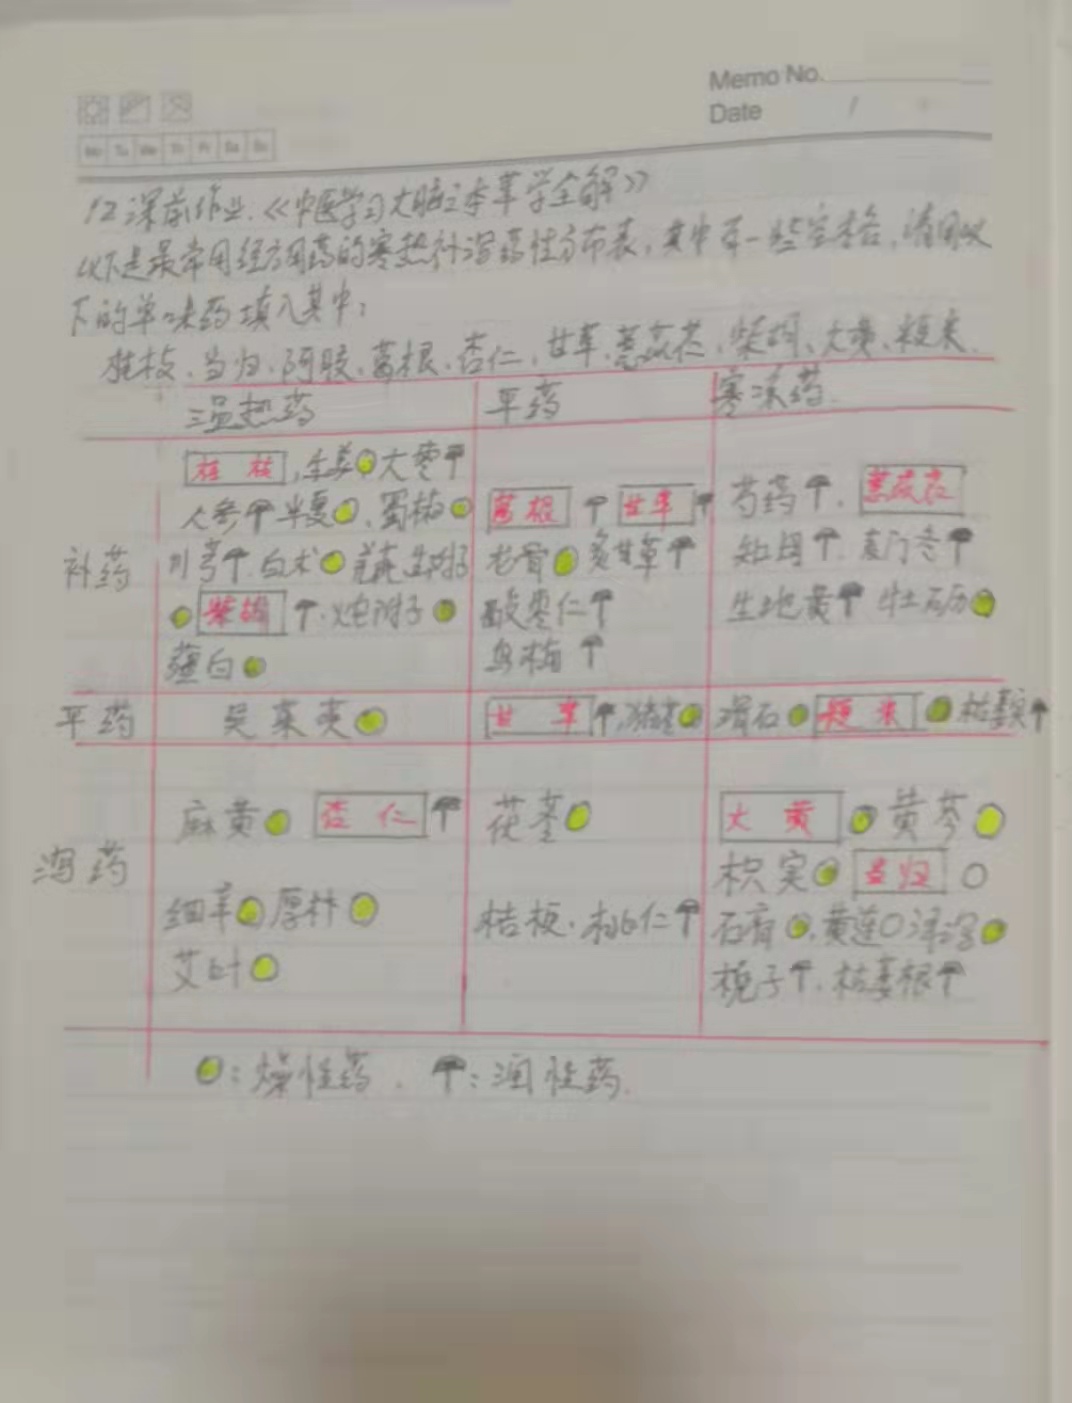 Memo No.
Date /
Mo Tu We Th Fr Sa Su
12课前作业.《中医学习大脑之本草学全解》
以下是最常用经方用药的寒热补泻药性分布表,其中有一些空格,请用以
下的单味药填入其中:
桂枝、当归、阿胶、葛根、杏仁、甘草、薏苡仁、柴胡、大黄、粳米.
温热药 平药 寒凉药
桂枝,生姜 大枣
人参 半夏、蜀椒 葛根 甘草 芍药.
补药 川芎.白术 生附子 龙骨 炙甘草 知母.麦门冬
柴胡.炮附子 酸枣仁 生地黄 牡蛎
薤白 乌梅
平药 吴茱萸 甘草,猪苓 滑石 粳米 栝蒌实
麻黄 杏仁 茯苓 大黄 黄芩
泻药 枳实 当归
细辛 厚朴 桔梗.桃仁 石膏.黄连 泽泻
艾叶 栀子.栝蒌根
:燥性药. :润性药.